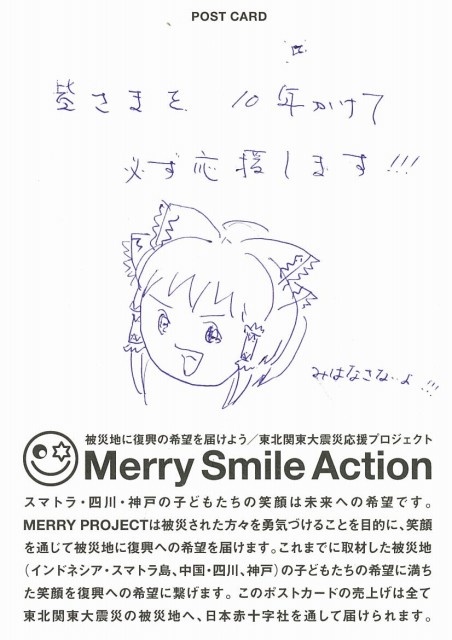 POST CARD
皆さまを 10年かけて
必ず応援します!!!
みはなさないよ!!!
被災地に復興の希望を届けよう／東北関東大震災応援プロジェクト
Merry Smile Action
スマトラ・四川・神戸の子どもたちの笑顔は未来への希望です。
MERRY PROJECTは被災された方々を勇気づけることを目的に、笑顔
を通じて被災地に復興への希望を届けます。これまでに取材した被災地
（インドネシア・スマトラ島、中国・四川、神戸）の子どもたちの希望に満ち
た笑顔を復興への希望に繋げます。このポストカードの売上げは全て
東北関東大震災の被災地へ、日本赤十字社を通して届けられます。